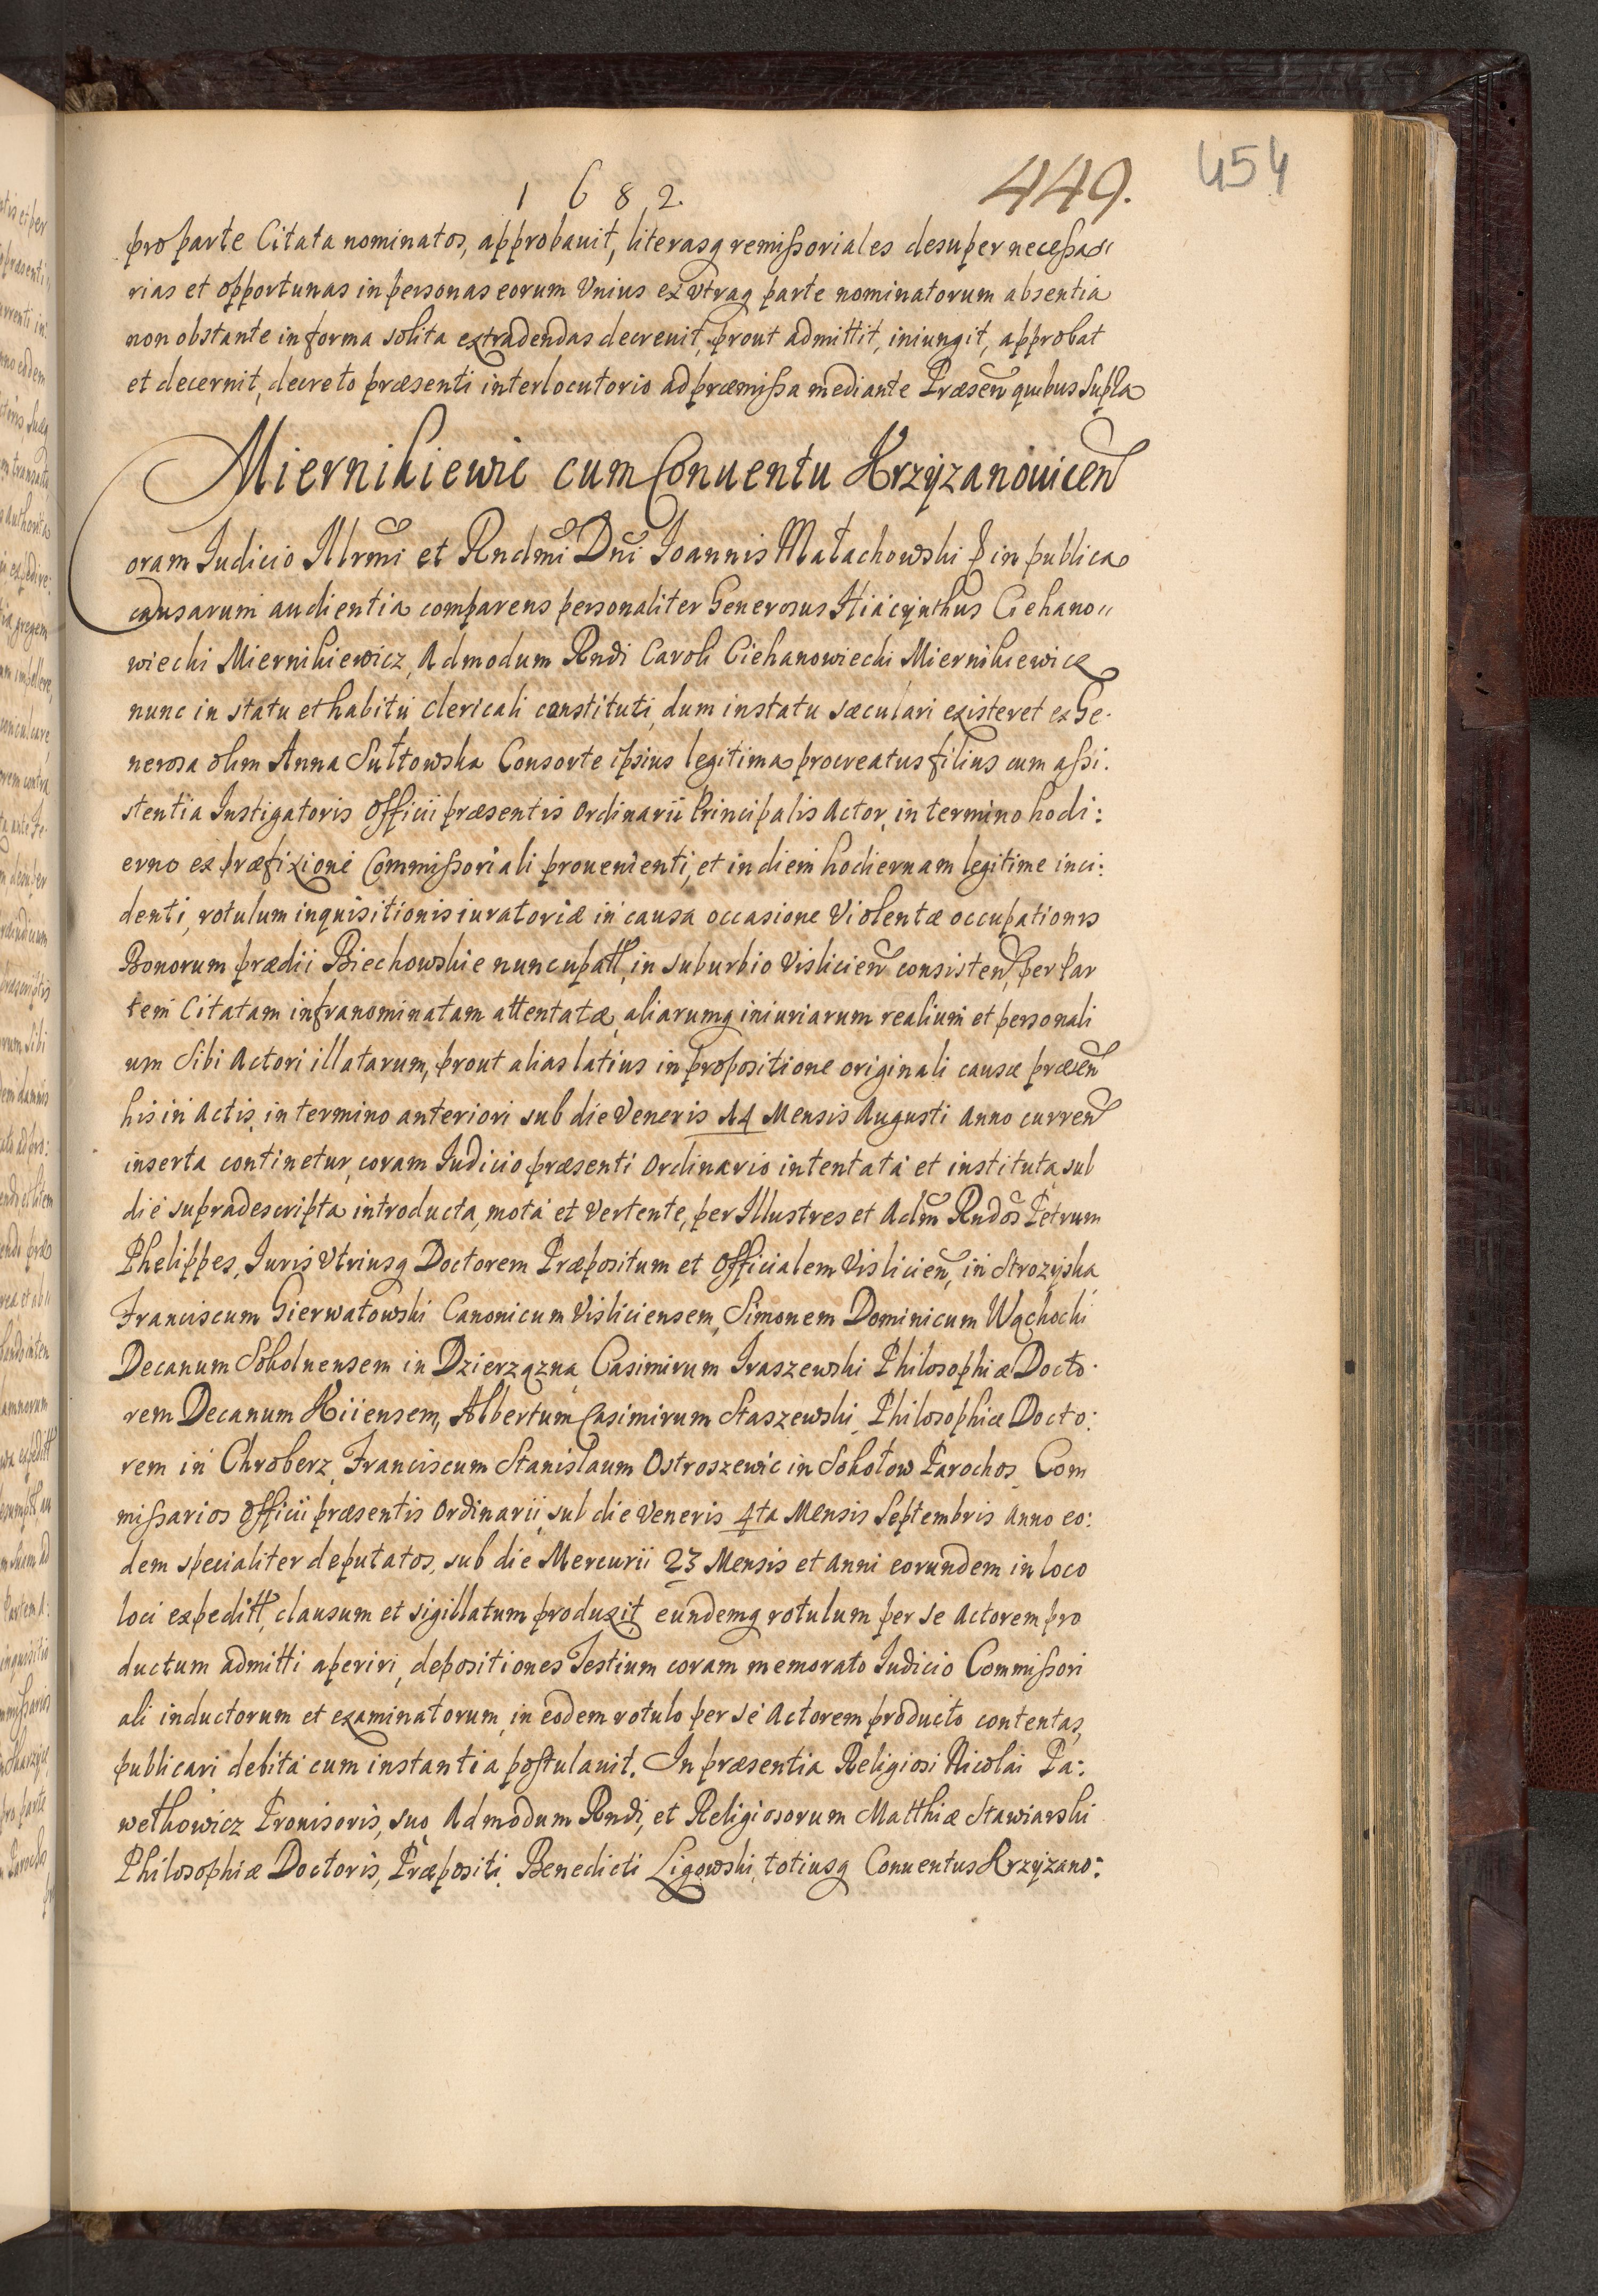 1682.
449.
454
pro parte Citata nominatos, approbauit, literasq remißoriales desuper necessa„
rias et opportunas in personas eorum Vnius ex vtraq parte nominatorum absentia
non obstante in forma solita extradendas decreuit, prout admittit, iniungit, approbat
et decernit, decreto præsenti interlocutorio ad præmißa mediante Præsen quibus Supla
Miernikiewic cum Conuentu Krzyzanouicen
Coram Judicio Illrmi et Rndmi Dni Joannis Małachowski in publica
causarum audientia comparens personaliter Generosus Hiacynthus Ciehano„
wiecki Miernikiewicz, Admodum Rndi Caroli Ciehanowiecki Miernikiewicz
nunc in statu et habitu clericali constituti, dum in statu sæculari existeret ex Ge.
nerosa olim Anna Sułtowska Consorte ipsius legitima procreatus filius cum aßi.
stentia Instigatoris Officii præsentis Ordinarii Principalis Actor, in termino hodi:
erno ex præfixione Commißoriali prouenienti, et in diem hodiernam legitime inci:
denti, rotulum inquisitionis iuratoriæ in causa occasione Violentæ occupationis
Bonorum prædii Biechowskie nuncupatt, in suburbio Vislicien consisten, per Par
tem Citatam infranominatam attentatæ, aliarumq iniuriarum realium et personali
um Sibi Actori illatarum, prout alias latius in propositione originali causæ præsen
his in Actis, in termino anteriori sub die Veneris 14 Mensis Augusti Anno curren
inserta continetur, coram Judicio præsenti Ordinario intentata et instituta, sub
die supradescripta introducta, mota et Vertente, per Illustres et Adm Rndos Petrum
Phelippes, Juris Vtriusq Doctorem Præpositum et Officialem Vislicien, in Strozyska
Franciscum Gierwatowski Canonicum Visliciensem, Simonem Dominicum Wąchocki
Decanum Sokolnensem in Dzierzązna, Casimirum Iraszewski Philosophiæ Docto.
rem Decanum Kiiensem, Albertum Casimirum Staszewski Philosophiæ Docto:
rem in Chroberz, Franciscum Stanislaum Ostroszewic in Sokołow Parochos, Com
mißarios Officii præsentis Ordinarii, sub die Veneris 4ta Mensis Septembris Anno eo:
dem specialiter deputatos, sub die Mercurii 23 Mensis et Anni eorundem in loco
loci expeditt, clausum et sigillatum produxit, eundemq rotulum per se Actorem pro
ductum admitti aperiri, depositiones Testium coram memorato Judicio Commißori
ali inductorum et examinatorum, in eodem rotulo per se Actorem producto contentas,
publicari debita cum instantia postulauit. In præsentia Religiosi Nicolai Pa:
wetkowicz Prouisoris, suo Admodum Rndi, et Religiosorum Matthiæ Stawiarski
Philosophiæ Doctoris, Præpositi, Benedicti Ligowski, totiusq Conuentus Krzyzano: